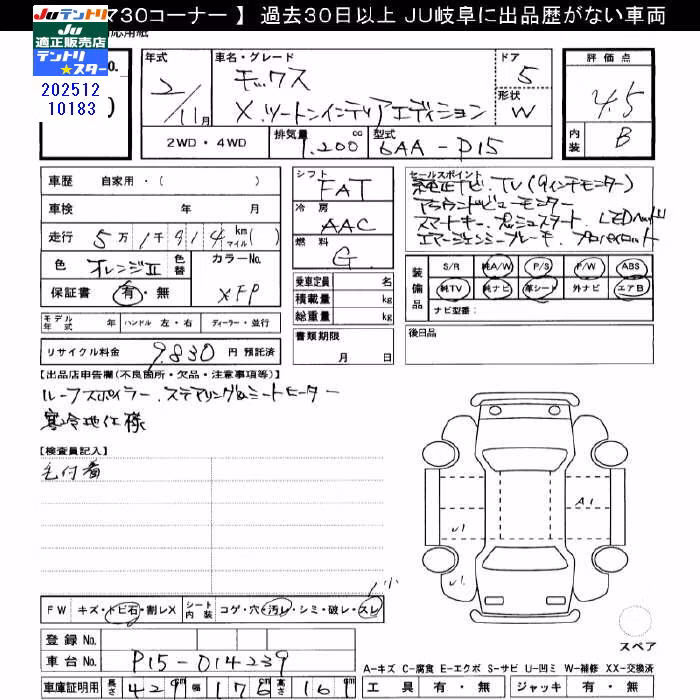 730コーナー 】 過去30日以上 JU岐阜に出品歴がない車両
JUテントリ
JU
適正販売店
テントリ
★スター
応用紙
No.
202512
10183
)
年式
2/11月
車名・グレード
キックス
X.ツートンインテリアエディション
ドア
5
形状
W
評価点
4.5
内装
B
2WD・4WD
排気量
1.200cc
型式
6AA-P15
車歴 自家用・( )
車検 年 月
走行 5万1千914km マイル( )
色 オレンジⅡ
色替
カラーNo.
XFP
保証書 有・無
モデル年式 年
ハンドル 左・右
ディーラー・並行
リサイクル料金 9.830円 預託済
シフト
FAT
冷房
AAC
燃料
G
乗車定員 名
積載量 kg
総重量 kg
書類期限
月 日
セールスポイント
純正ナビ.TV(9インチモニター)
アラウンドビューモニター
スマートキー.プッシュスタート.LEDヘッド
エマージェンシーブレーキ.プロパイロット
装備品
S/R 純A/W P/S P/W ABS
純TV 純ナビ 革シート 外ナビ エアB
ナビ型番:
後日品
【出品店申告欄(不良箇所・欠品・注意事項等)】
ルーフスポイラー.ステアリング&シートヒーター
寒冷地仕様
【検査員記入】
毛付着
A1
U1
U1
小
FW キズ・トビ石・割レX
シート内装 コゲ・穴・汚レ・シミ・破レ・スレ
登録No.
車台No. P15-014239
車庫証明用 長さ 429cm 幅 176cm 高さ 161cm
スペア
A-キズ C-腐食 E-エクボ S-サビ U-凹ミ W-補修 XX-交換済
工具 有・無 ジャッキ 有・無